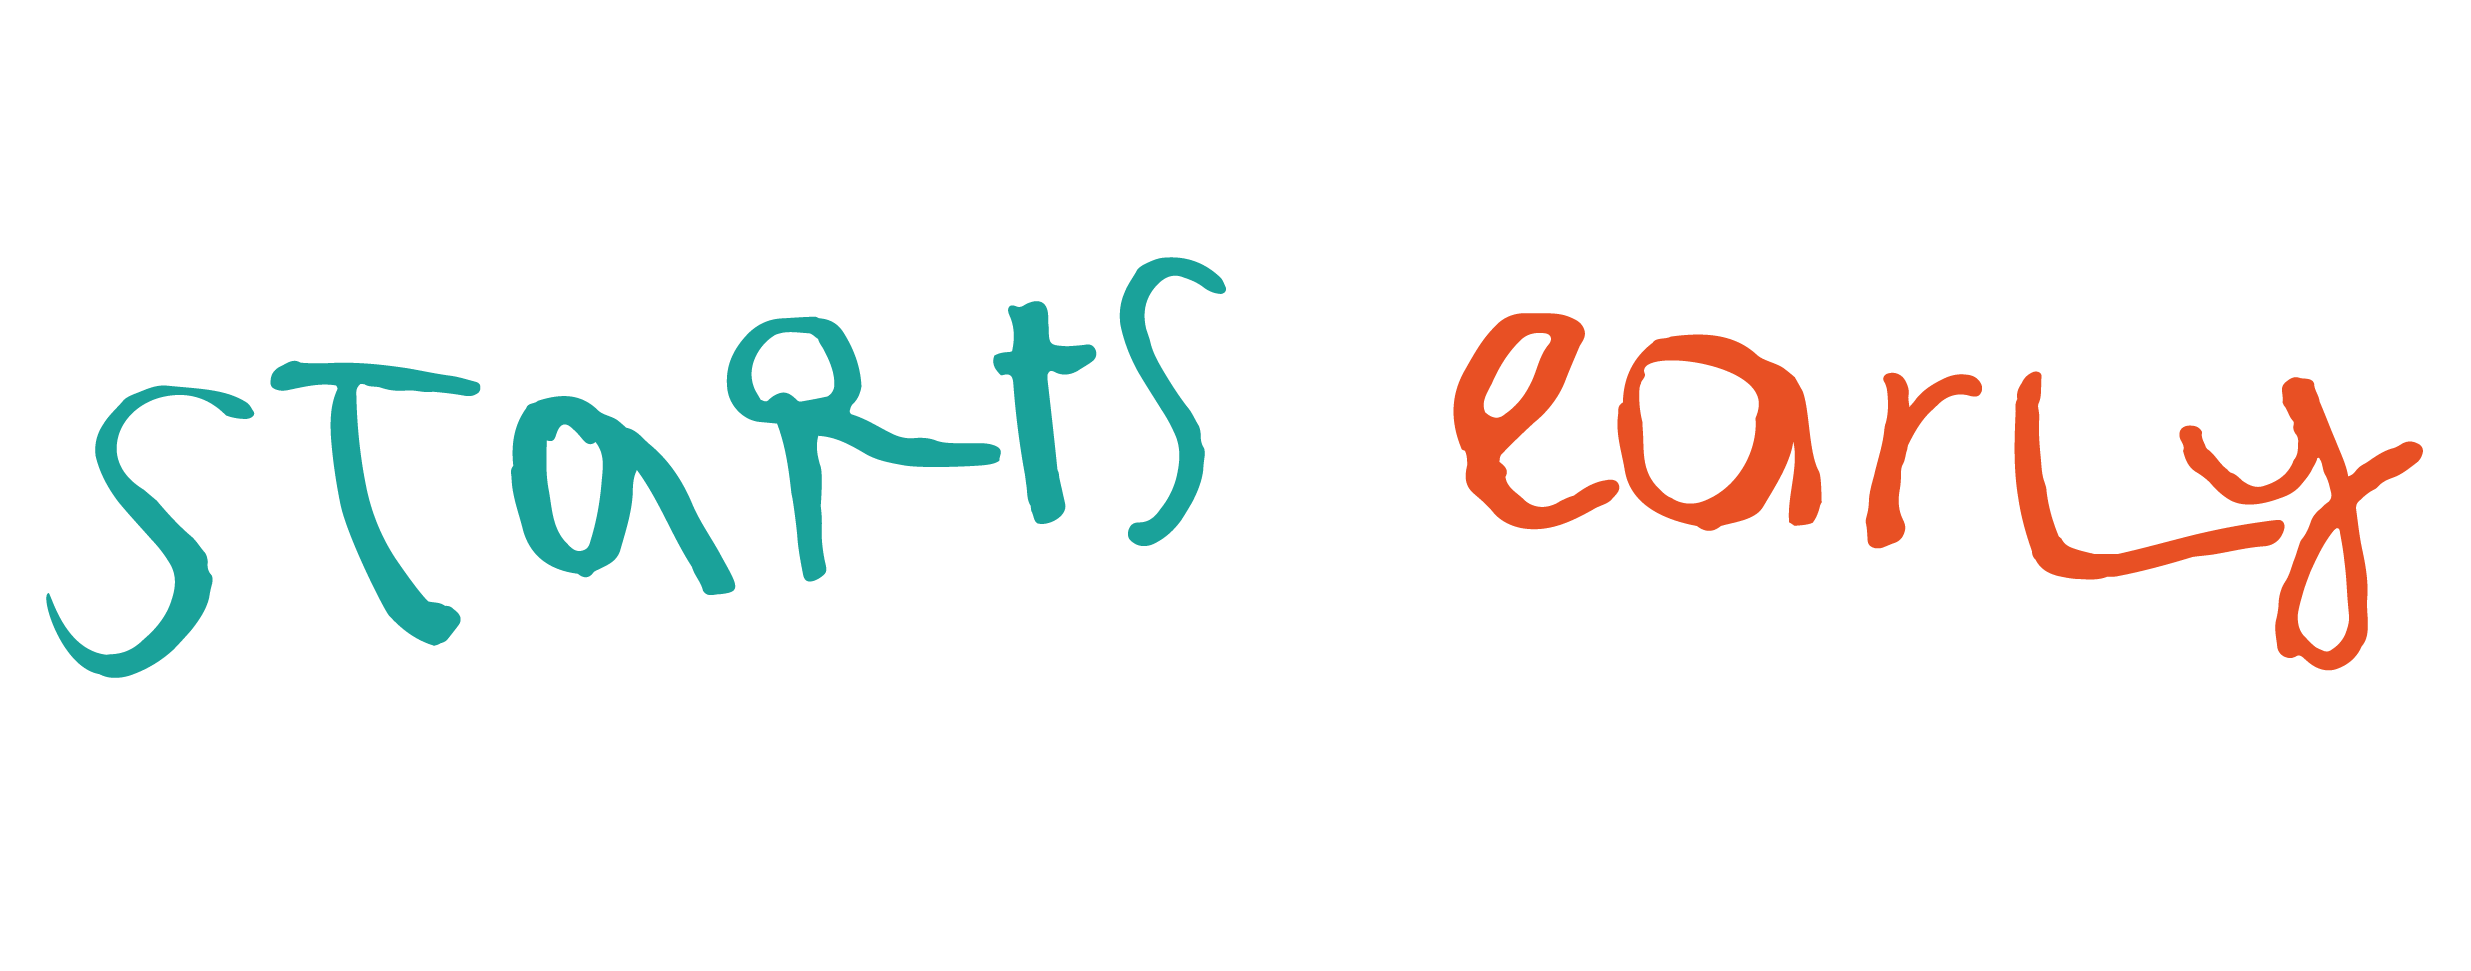 STaRtS earLy